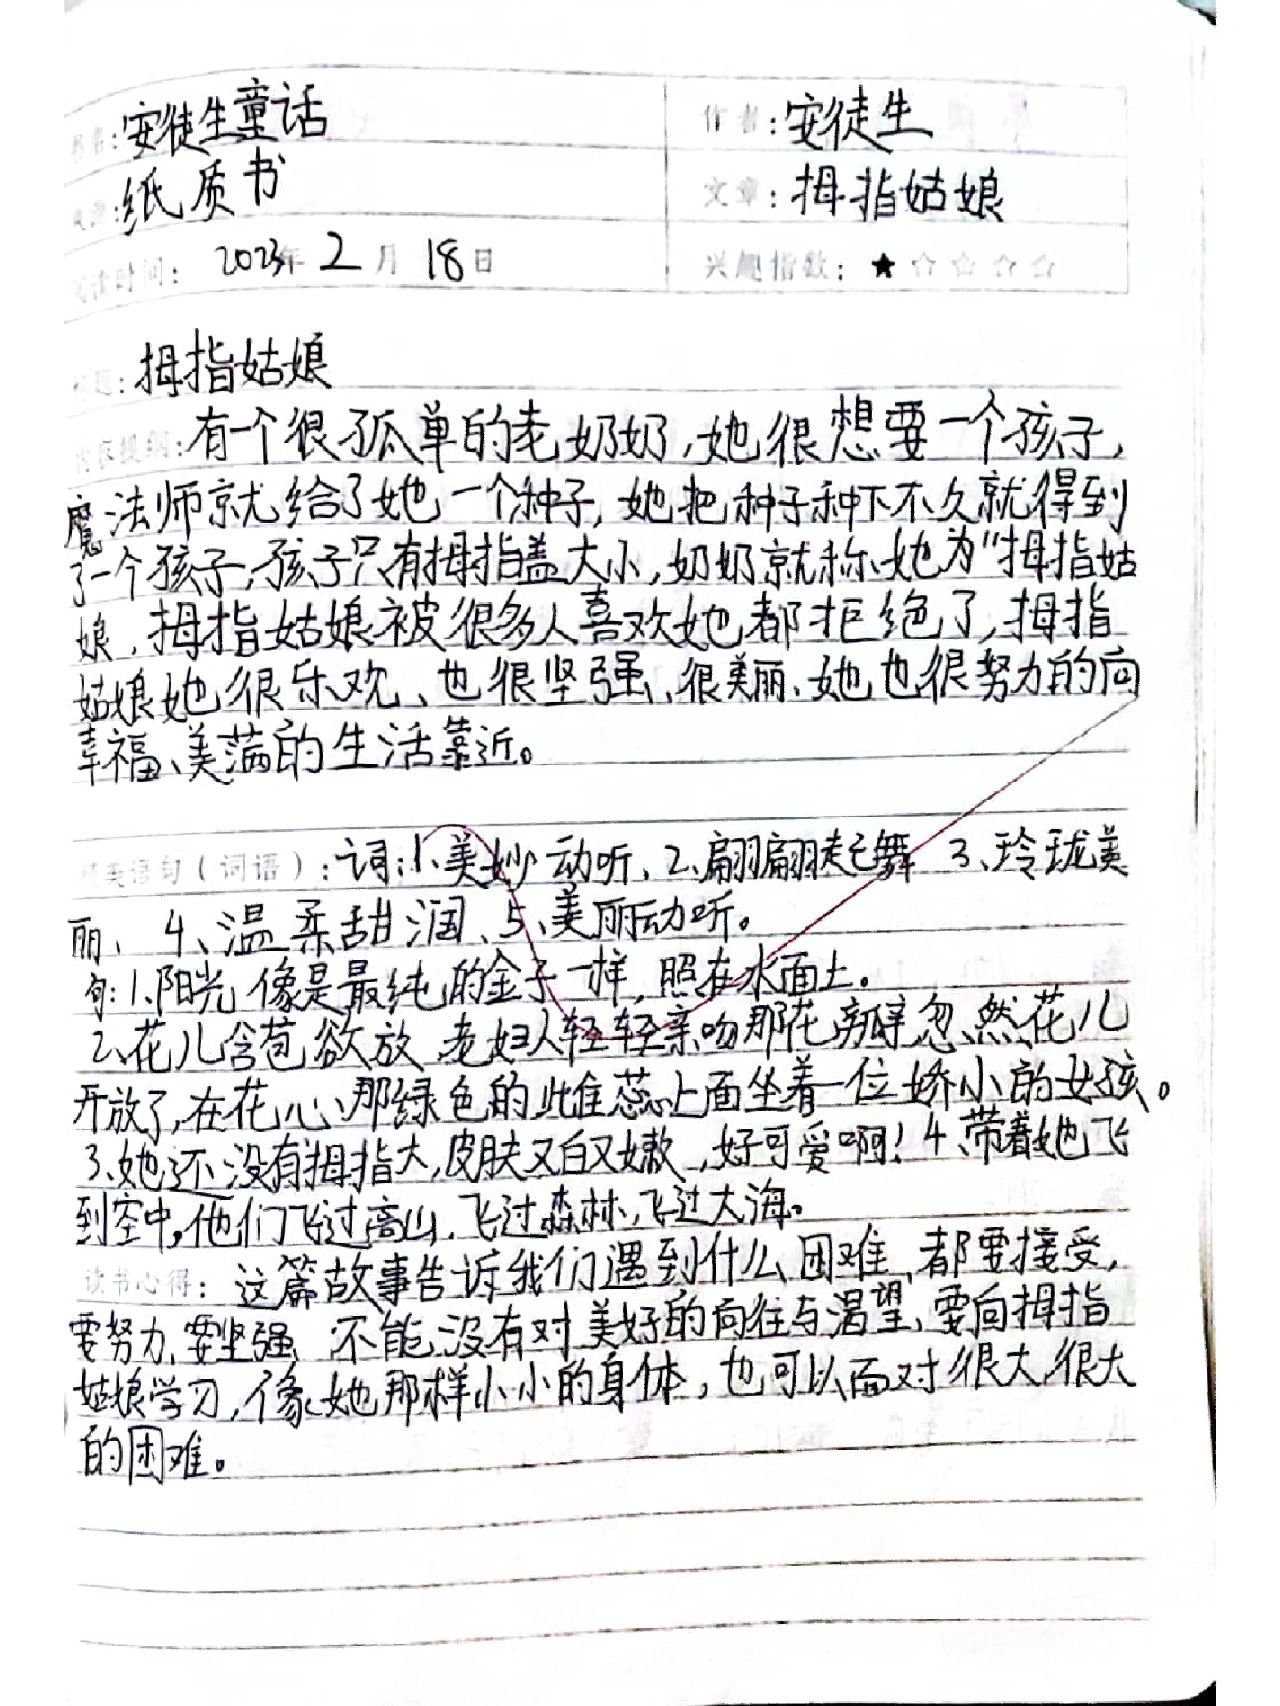 书名:安徒生童话 作者:安徒生
:纸质书 文章:拇指姑娘
阅读时间: 2023年 2月 18日 兴趣指数:★☆☆☆☆
标题:拇指姑娘
内容提纲:有一个很孤单的老奶奶,她很想要一个孩子,
魔法师就给了她一个种子,她把种子种下不久就得到
了一个孩子,孩子只有拇指盖大小,奶奶就称她为“拇指姑
娘,拇指姑娘被很多人喜欢她都拒绝了,拇指
姑娘她很乐观、也很坚强、很美丽、她也很努力的向
幸福、美满的生活靠近。
优美语句(词语):词:1、美妙动听、2、翩翩起舞 3、玲珑美
丽、4、温柔甜润、5、美丽动听。
句:1、阳光像是最纯的金子一样,照在水面上。
2、花儿含苞欲放,老妇人轻轻亲吻那花瓣忽然花儿
开放了,在花心、那绿色的雌蕊上面坐着一位娇小的女孩。
3、她还没有拇指大,皮肤又白又嫩,好可爱啊!4、带着她飞
到空中,他们飞过高山,飞过森林,飞过大海。
读书心得:这篇故事告诉我们遇到什么困难、都要接受,
要努力,要坚强、不能没有对美好的向往与渴望、要向拇指
姑娘学习,像她那样小小的身体,也可以面对很大很大
的困难。